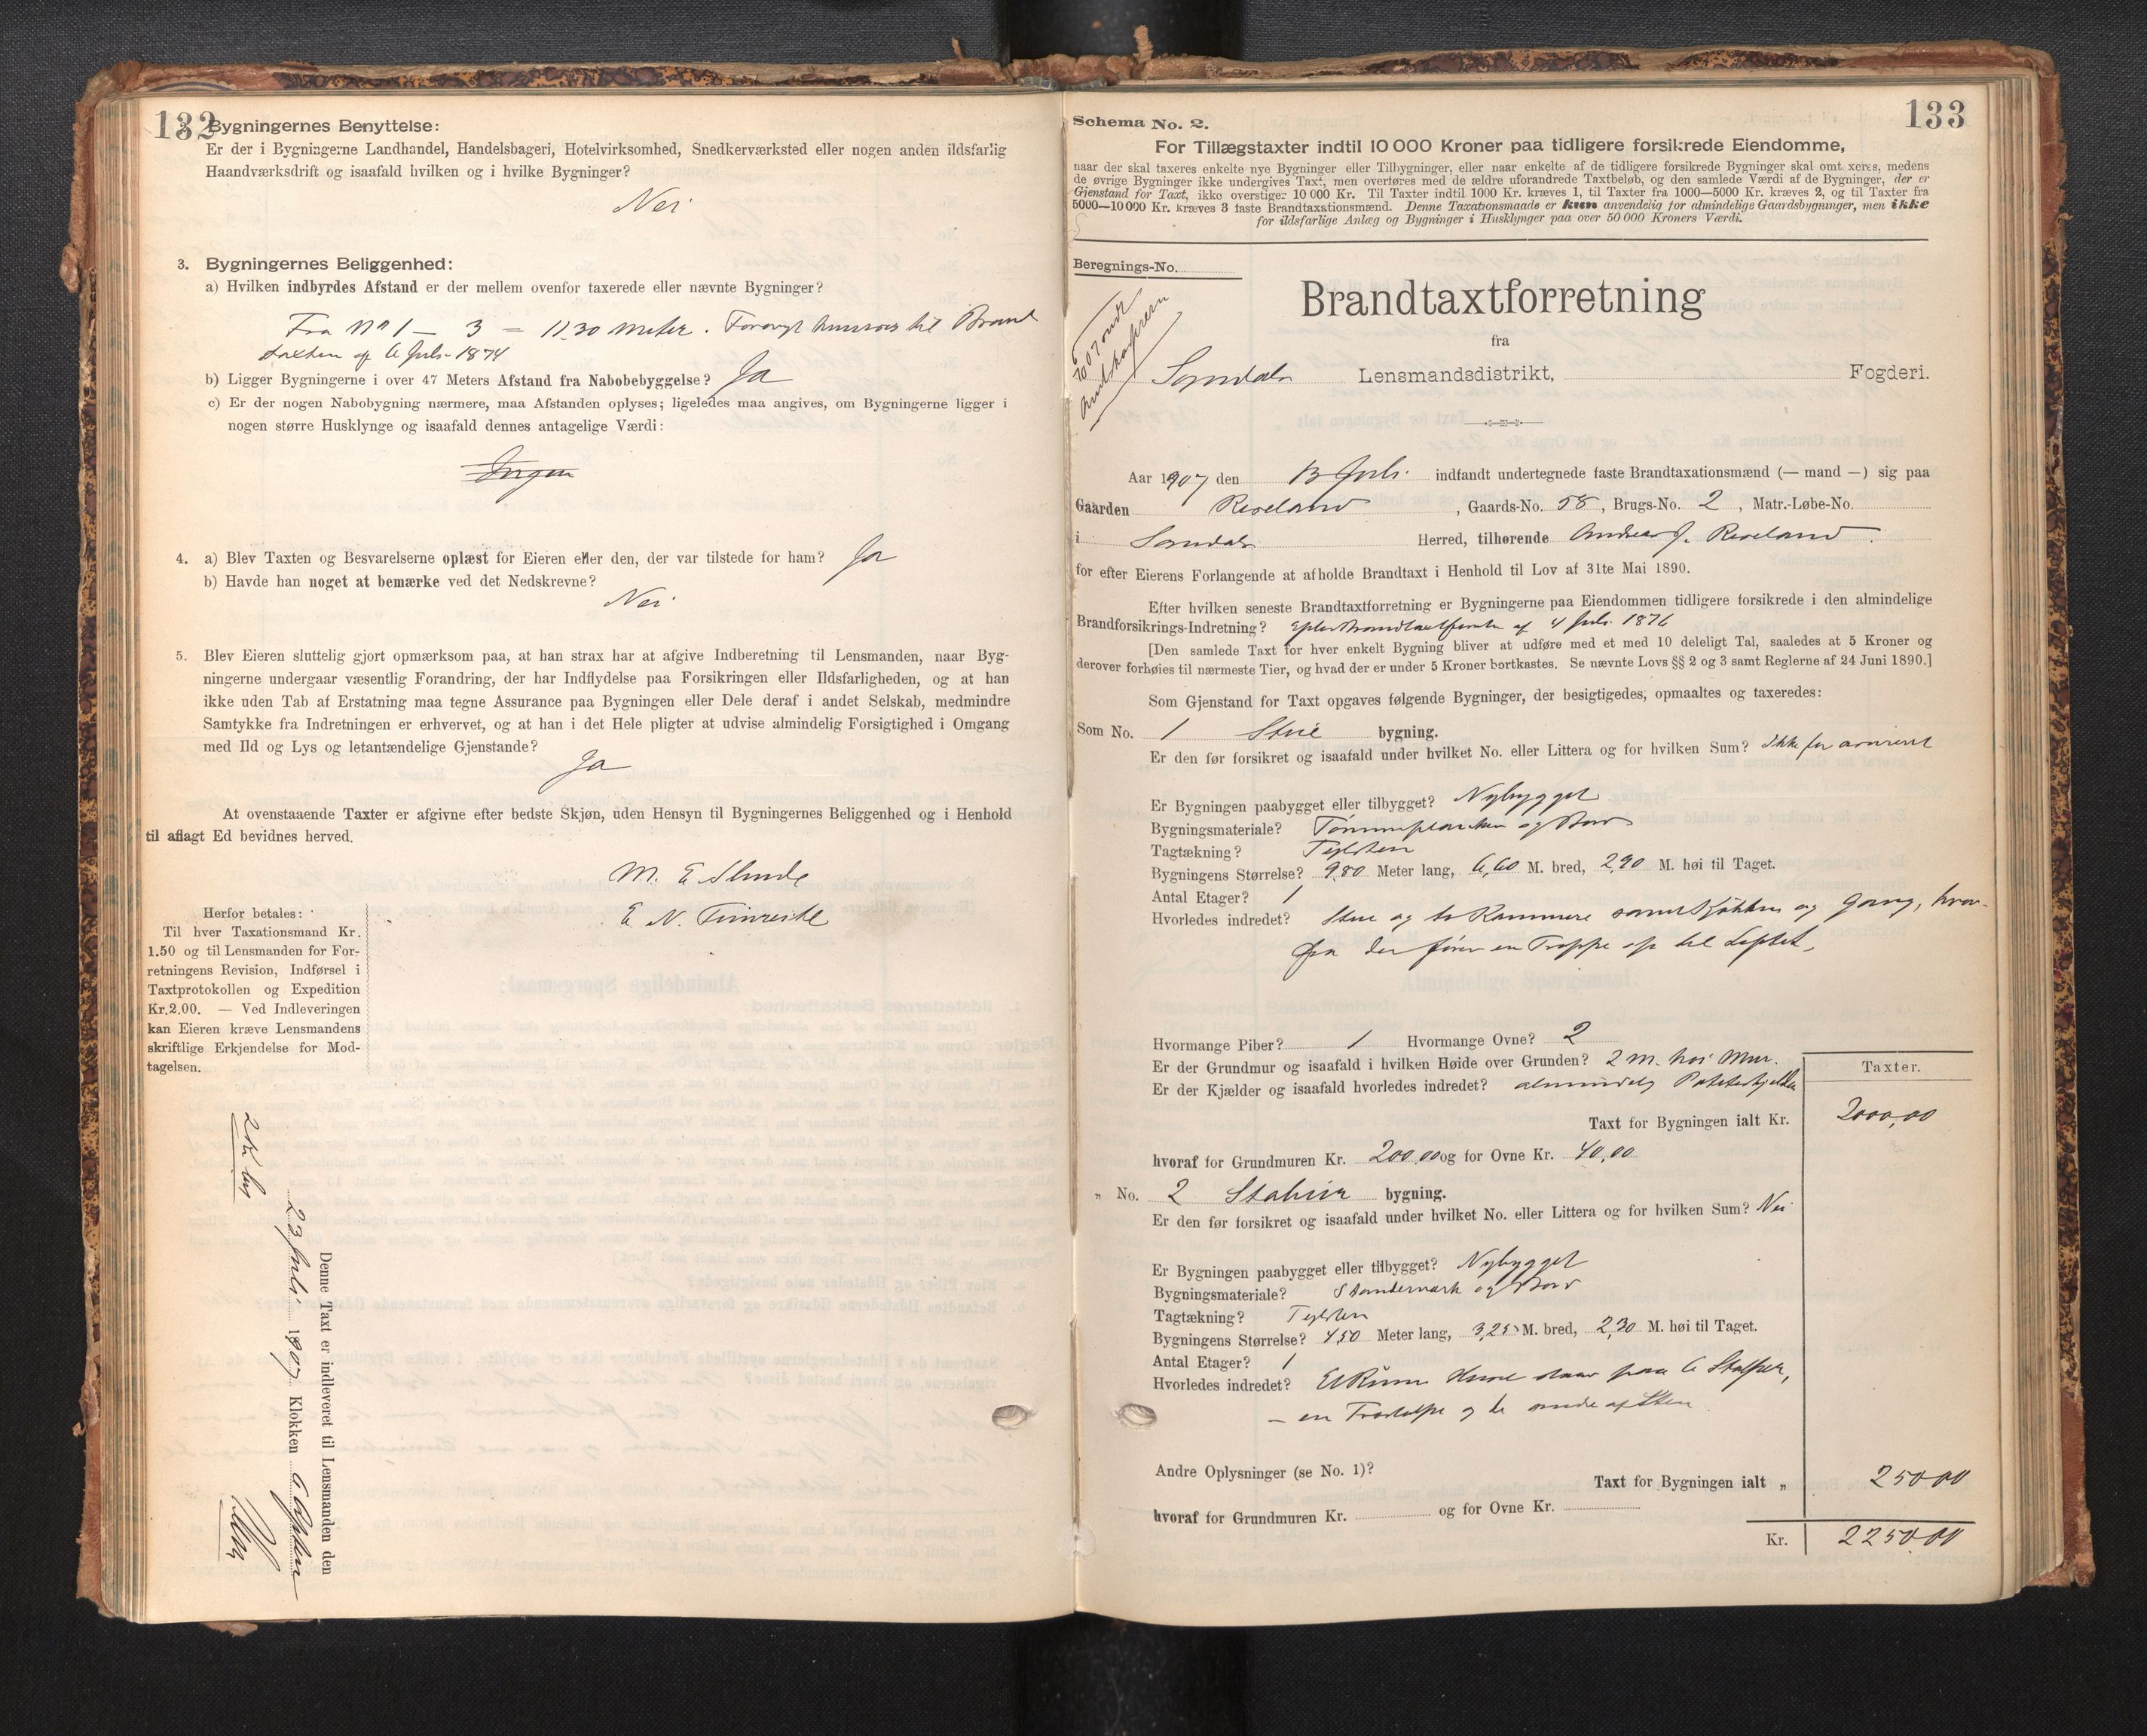 132
2. Bygningernes Benyttelse:
Er der i Bygningerne Landhandel, Handelsbageri, Hotelvirksomhed, Snedkerværksted eller nogen anden ildsfarlig
Haandværksdrift og isaafald hvilken og i hvilke Bygninger?
Nei
3. Bygningernes Beliggenhed:
a) Hvilken indbyrdes Afstand er der mellem ovenfor taxerede eller nævnte Bygninger?
Fra No 1 – 3 = 11.30 Meter. Forøvrigt henvises til Brand
taxten af 6 Juli 1874
b) Ligger Bygningerne i over 47 Meters Afstand fra Nabobebyggelse? Ja
c) Er der nogen Nabobygning nærmere, maa Afstanden oplyses; ligeledes maa angives, om Bygningerne ligger i
nogen større Husklynge og isaafald dennes antagelige Værdi:
Ingen
4. a) Blev Taxten og Besvarelserne oplæst for Eieren eller den, der var tilstede for ham? Ja
b) Havde han noget at bemærke ved det Nedskrevne?
Nei
5. Blev Eieren sluttelig gjort opmærksom paa, at han strax har at afgive Indberetning til Lensmanden, naar Byg-
ningerne undergaar væsentlig Forandring, der har Indflydelse paa Forsikringen eller Ildsfarligheden, og at han
ikke uden Tab af Erstatning maa tegne Assurance paa Bygningen eller Dele deraf i andet Selskab, medmindre
Samtykke fra Indretningen er erhvervet, og at han i det Hele pligter at udvise almindelig Forsigtighed i Omgang
med Ild og Lys og letantændelige Gjenstande?
Ja
At ovenstaaende Taxter er afgivne efter bedste Skjøn, uden Hensyn til Bygningernes Beliggenhed og i Henhold
til aflagt Ed bevidnes herved.
M. E.
E. N.
Herfor betales:
Til hver Taxationsmand Kr.
1.50 og til Lensmanden for For-
retningens Revision, Indførsel i
Taxtprotokollen og Expedition
Kr.2.00. — Ved Indleveringen
kan Eieren kræve Lensmandens
skriftlige Erkjendelse for Mod-
tagelsen.
2 Kr
Denne Taxt er indleveret til Lensmanden den
23 Juli 1907 Klokken 6
133
Schema No. 2.
For Tillægstaxter indtil 10 000 Kroner paa tidligere forsikrede Eiendomme,
naar der skal taxeres enkelte nye Bygninger eller Tilbygninger, eller naar enkelte af de tidligere forsikrede Bygninger skal omtaxeres, medens
de øvrige Bygninger ikke undergives Taxt, men overføres med de ældre uforandrede Taxtbeløb, og den samlede Værdi af de Bygninger, der er
Gjenstand for Taxt, ikke overstiger 10 000 Kr. Til Taxter indtil 1000 Kr. kræves 1, til Taxter fra 1000—5000 Kr. kræves 2, og til Taxter fra
5000—10 000 Kr. kræves 3 faste Brandtaxationsmænd. Denne Taxationsmaade er kun anvendelig for almindelige Gaardsbygninger, men ikke
for ildsfarlige Anlæg og Bygninger i Husklynger paa over 50 000 Kroners Værdi.
Beregnings-No.
Brandtaxtforretning
fra
Lensmandsdistrikt, Fogderi.
Aar 1907 den 13 Juli indfandt undertegnede faste Brandtaxationsmænd (— mand —) sig paa
Gaarden Røseland, Gaards-No. 58, Brugs-No. 2, Matr.-Løbe-No.
i Herred, tilhørende Andreas J. Røseland.
for efter Eierens Forlangende at afholde Brandtaxt i Henhold til Lov af 31te Mai 1890.
Efter hvilken seneste Brandtaxtforretning er Bygningerne paa Eiendommen tidligere forsikrede i den almindelige
Brandforsikrings-Indretning? Efter af 4 Juli 1876
[Den samlede Taxt for hver enkelt Bygning bliver at udføre med et med 10 deleligt Tal, saaledes at 5 Kroner og
derover forhøies til nærmeste Tier, og hvad der er under 5 Kroner bortkastes. Se nævnte Lovs §§ 2 og 3 samt Reglerne af 24 Juni 1890.]
Som Gjenstand for Taxt opgaves følgende Bygninger, der besigtigedes, opmaaltes og taxeredes:
Som No. 1 Stue bygning.
Er den før forsikret og isaafald under hvilket No. eller Littera og for hvilken Sum? Ikke før assureret
Er Bygningen paabygget eller tilbygget? Nybygget
Bygningsmateriale? Tømmerplanker og Bord
Tagtækning? Teglsten
Bygningens Størrelse? 9,80 Meter lang, 6,60 M. bred, 2,90 M. høi til Taget.
Antal Etager? 1
Hvorledes indredet? Stue og to Kammere samt Kjøkken og Gang, hvor-
fra der fører en Trappe op til Loftet.
Hvormange Piber? 1 Hvormange Ovne? 2
Er der Grundmur og isaafald i hvilken Høide over Grunden? 2 m. høi Mur.
Er der Kjælder og isaafald hvorledes indredet? almindelig Potetkjelder
Taxter.
Taxt for Bygningen ialt Kr. 2000,00
hvoraf for Grundmuren Kr. 200.00 og for Ovne Kr. 40,00
„ No. 2 Stabur bygning.
Er den før forsikret og isaafald under hvilket No. eller Littera og for hvilken Sum? Nei
Er Bygningen paabygget eller tilbygget? Nybygget
Bygningsmateriale? Standerværk og Bord
Tagtækning? Teglsten
Bygningens Størrelse? 4,50 Meter lang, 3,25 M. bred, 2,30 M. høi til Taget.
Antal Etager? 1
Hvorledes indredet? Et Rum Huset staar paa 6 Stolper,
Andre Oplysninger (se No. 1)?
Taxt for Bygningen ialt „ 250 00
hvoraf for Grundmuren Kr. og for Ovne Kr.
Kr. 2250.00